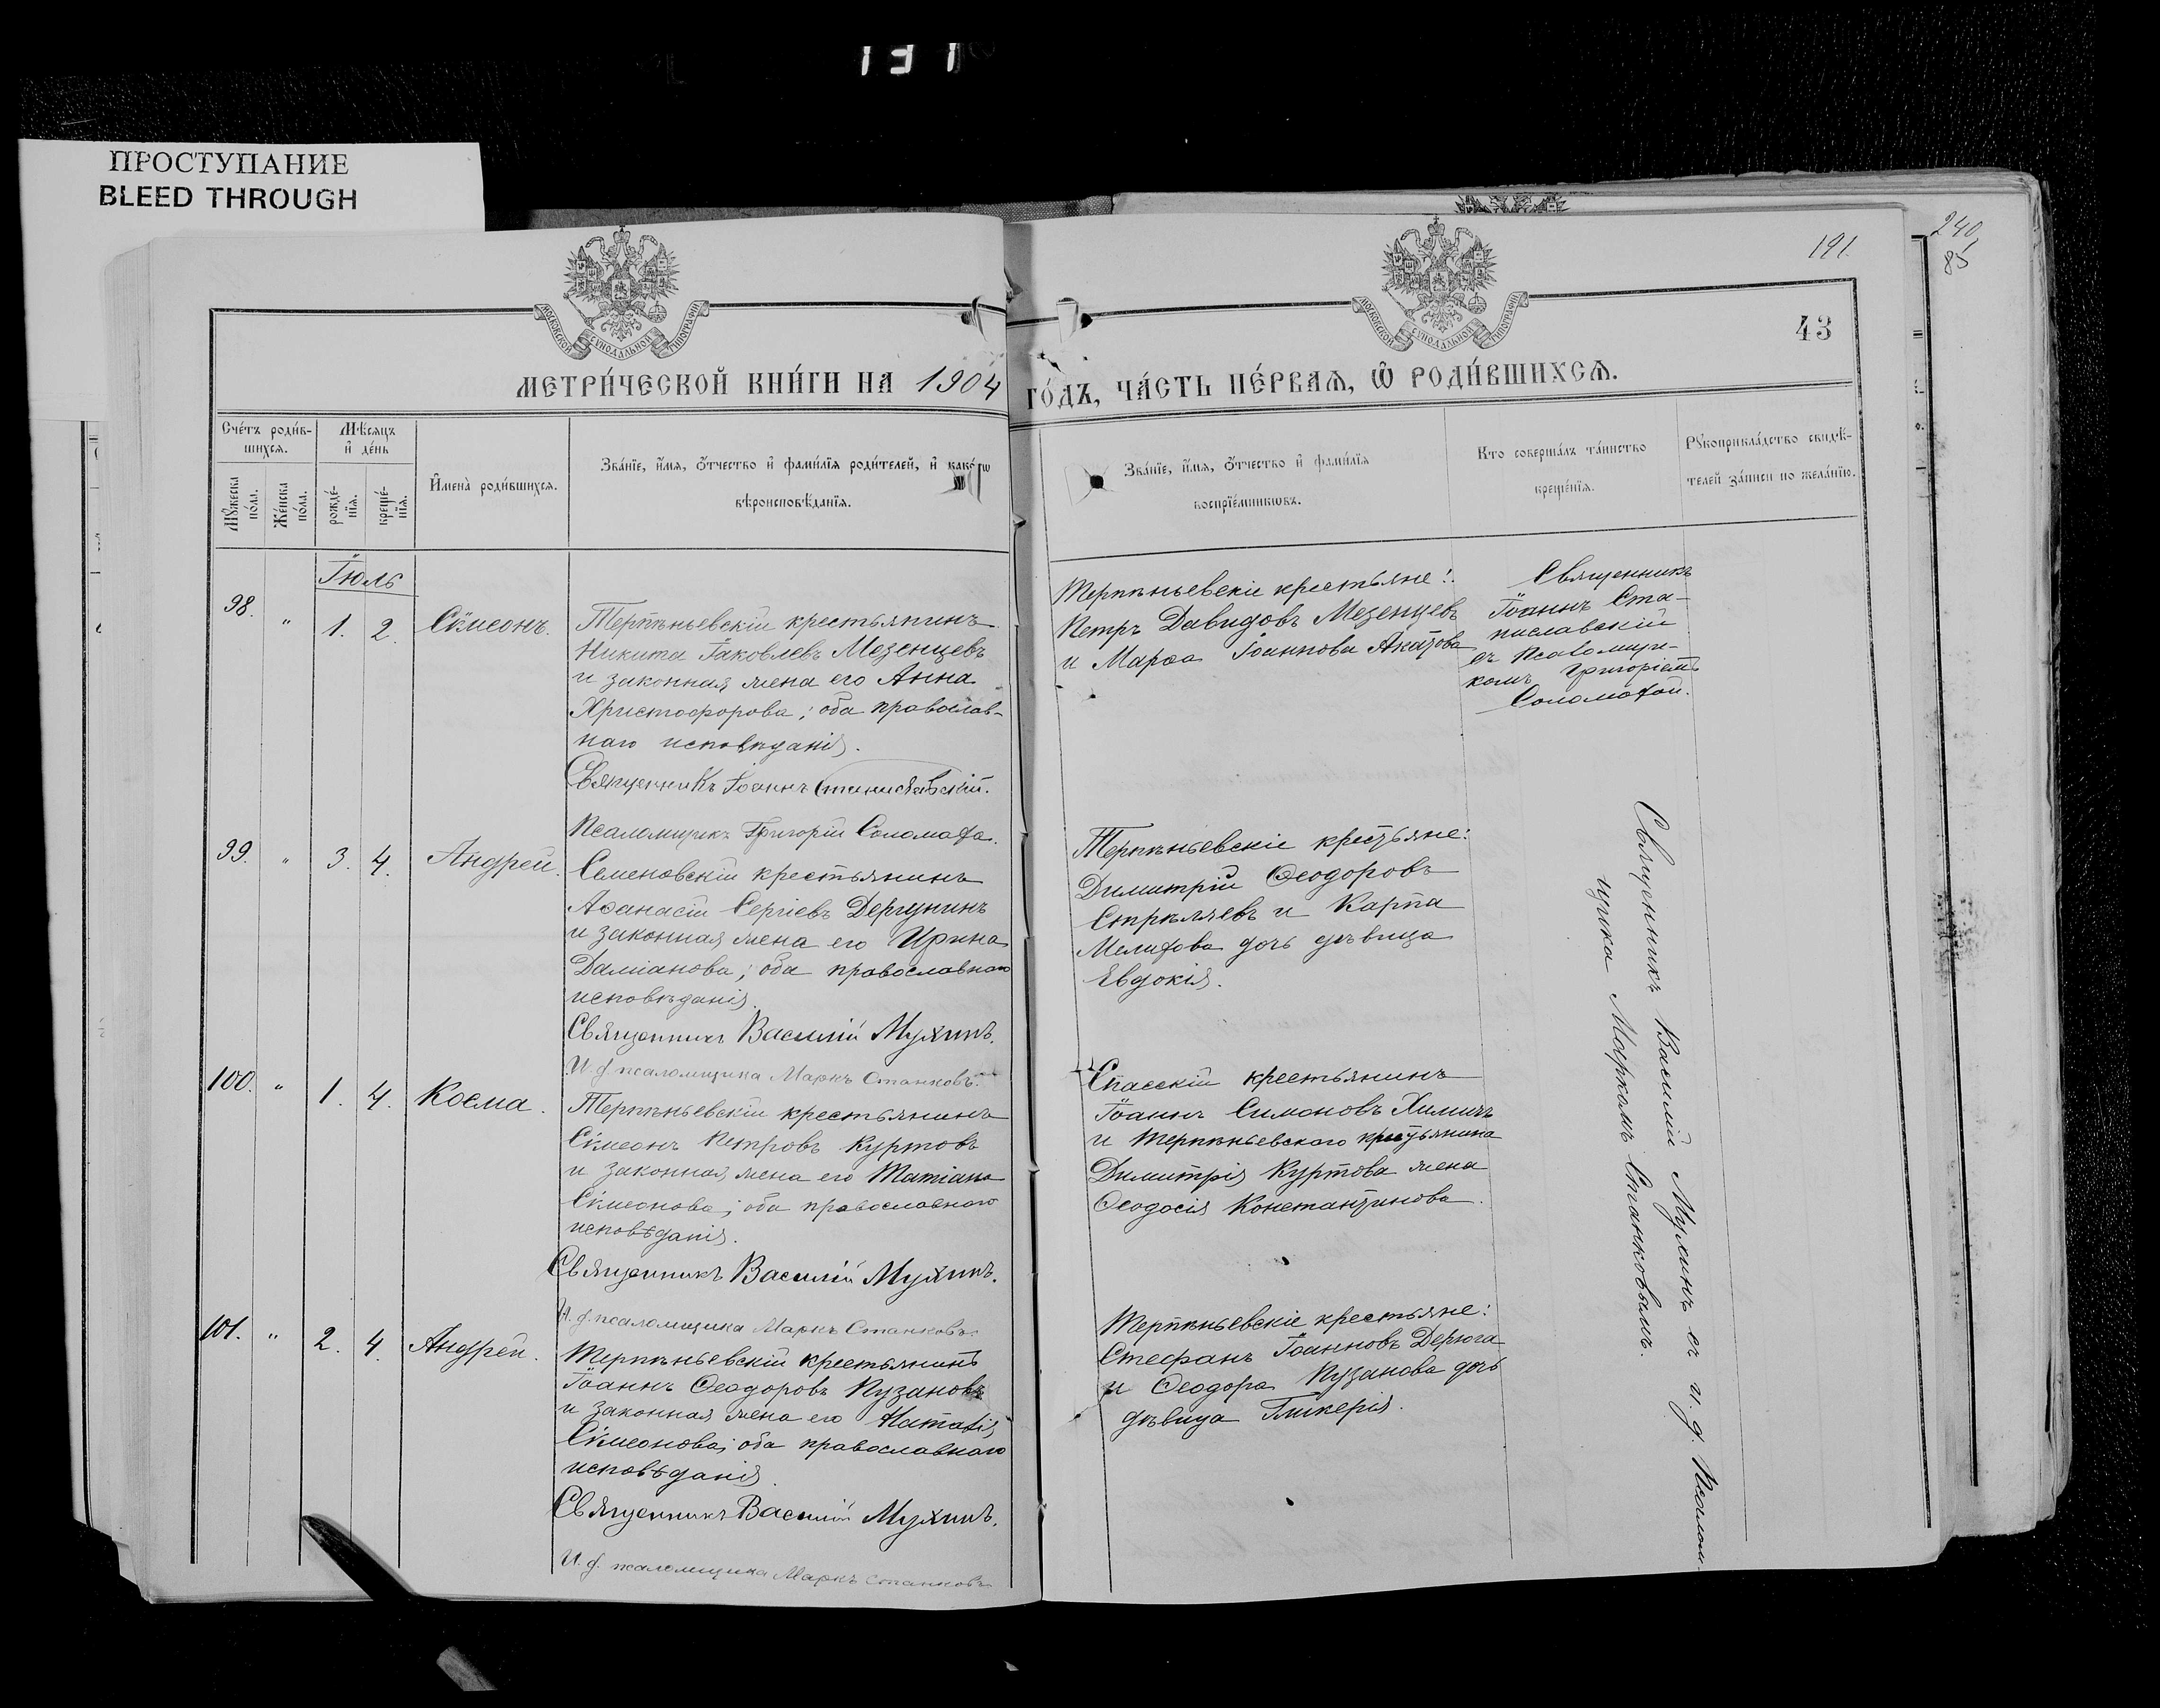 191
ПРОСТУПАНИЕ
BLEED THROUGH
240
85
191.
43
МОСКОВСКОЙ СѴНОДАЛЬНОЙ ТИПОГРАФИИ
МОСКОВСКОЙ СѴНОДАЛЬНОЙ ТИПОГРАФИИ
МЕТРИ́ЧЕСКОЙ КНИ́ГИ НА 1904 ГО́ДЪ, ЧА́СТЬ ПЕ́РВАѦ, Ѡ҆ РОДИ́ВШИХСѦ.
Сче́тъ роди́в-
шихсѧ.
Мꙋ́жеска по́ла.
Же́нска по́ла.
Мѣ́сѧцъ
и҆ де́нь
рожде́-
нїѧ.
креще́-
нїѧ.
И҆мена̀ роди́вшихсѧ.
Зва́нїе, и҆́мѧ, ѻ҆́тчество и҆ фами́лїѧ роди́телей, и҆ како́гѡ
вѣроисповѣ́данїѧ.
Зва́нїе, и҆́мѧ, ѻ҆́тчество и҆ фами́лїѧ
воспрїе́мникѡвъ.
Кто соверша́лъ та́инство
креще́нїѧ.
Рꙋкоприкла́дство свидѣ́-
телей за́писи по жела́нїю.
Іюль
98. " 1. 2. Сѵмеонъ.
Терпѣньевскій крестьянинъ
Никита Іаковлевъ Мезенцевъ
и законная жена его Анна
Христофорова; оба православ-
наго исповѣданія.
Священникъ Іоаннъ Станиславскій.
Псаломщикъ Григорій Соломаха.
Терпѣньевскіе крестьяне:
Петръ Давидовъ Мезенцевъ
и Марѳа Іоаннова Акатова
Священникъ
Іоаннъ Ста-
ниславскій
съ псаломщи-
комъ Григоріемъ
Соломахой.
99. " 3. 4. Андрей.
Семеновскій крестьянинъ
Аѳанасій Сергіевъ Дергунинъ
и законная жена его Ирина
Даміанова; оба православнаго
исповѣданія.
Священникъ Василій Мухинъ.
И. д. псаломщика Маркъ Станковъ.
Терпѣньевскіе крестьяне:
Димитрій Ѳеодоровъ
Стрѣляевъ и Карпа
Мелихова дочь дѣвица
Евдокія.
100. " 1. 4. Косма.
Терпѣньевскій крестьянинъ
Сѵмеонъ Петровъ Куртовъ
и законная жена его Татіана
Сѵмеонова; оба православнаго
исповѣданія.
Священникъ Василій Мухинъ.
И. д. псаломщика Маркъ Станковъ.
Спасскій крестьянинъ
Іоаннъ Симоновъ Химичъ
и Терпѣньевскаго крестьянина
Димитрія Куртова жена
Ѳеодосія Константинова.
101. " 2. 4. Андрей.
Терпѣньевскій крестьянинъ
Іоаннъ Ѳеодоровъ Пузановъ
и законная жена его Наталія
Сѵмеонова; оба православнаго
исповѣданія.
Священникъ Василій Мухинъ.
И. д. псаломщика Маркъ Станковъ
Терпѣньевскіе крестьяне:
Стефанъ Іоанновъ Дерюга
и Ѳеодора Пузанова дочь
дѣвица Гликерія.
Священникъ Василій Мухинъ съ и. д. Псалом-
щика Маркомъ Станковымъ.